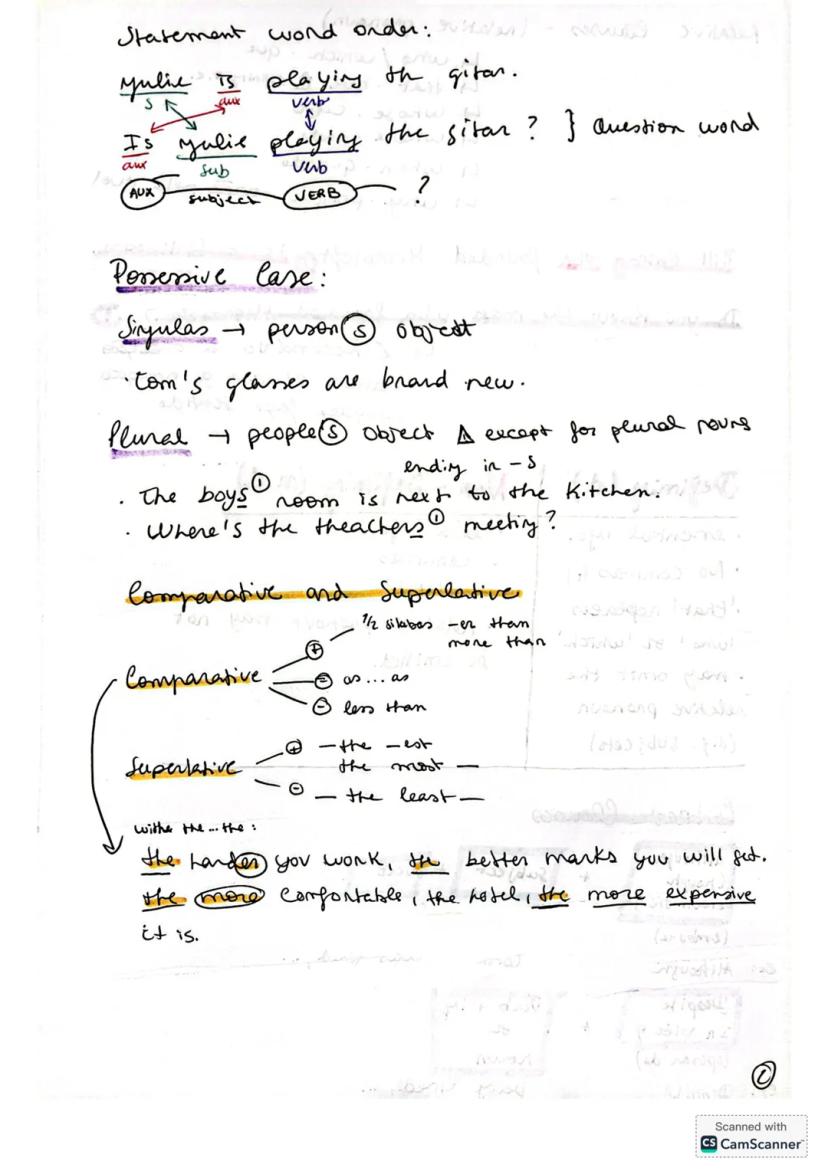 Statement word order:
Yulie Is playing th gitar.
S aux verb
Is Yulie playing the gitar ? } Question word
aux sub verb
AUX subject VERB ?
Possessive Case:
Singular → person (s) object
· Tom's glasses are brand new.
Plural → people (s) object ⚠ except for plural nouns
ending in -s
. The boys' room is next to the kitchen.
. Where's the theachers' meeting?
Comparative and Superlative
1/2 silabas -er than
+ more than
Comparative = as...as
- less than
+ - the -est
Superlative the most —
- — the least —
withe the...the:
the harder you work, the better marks you will get.
the more confortable, the hotel, the more expensive
it is.
Scanned with
CS CamScanner